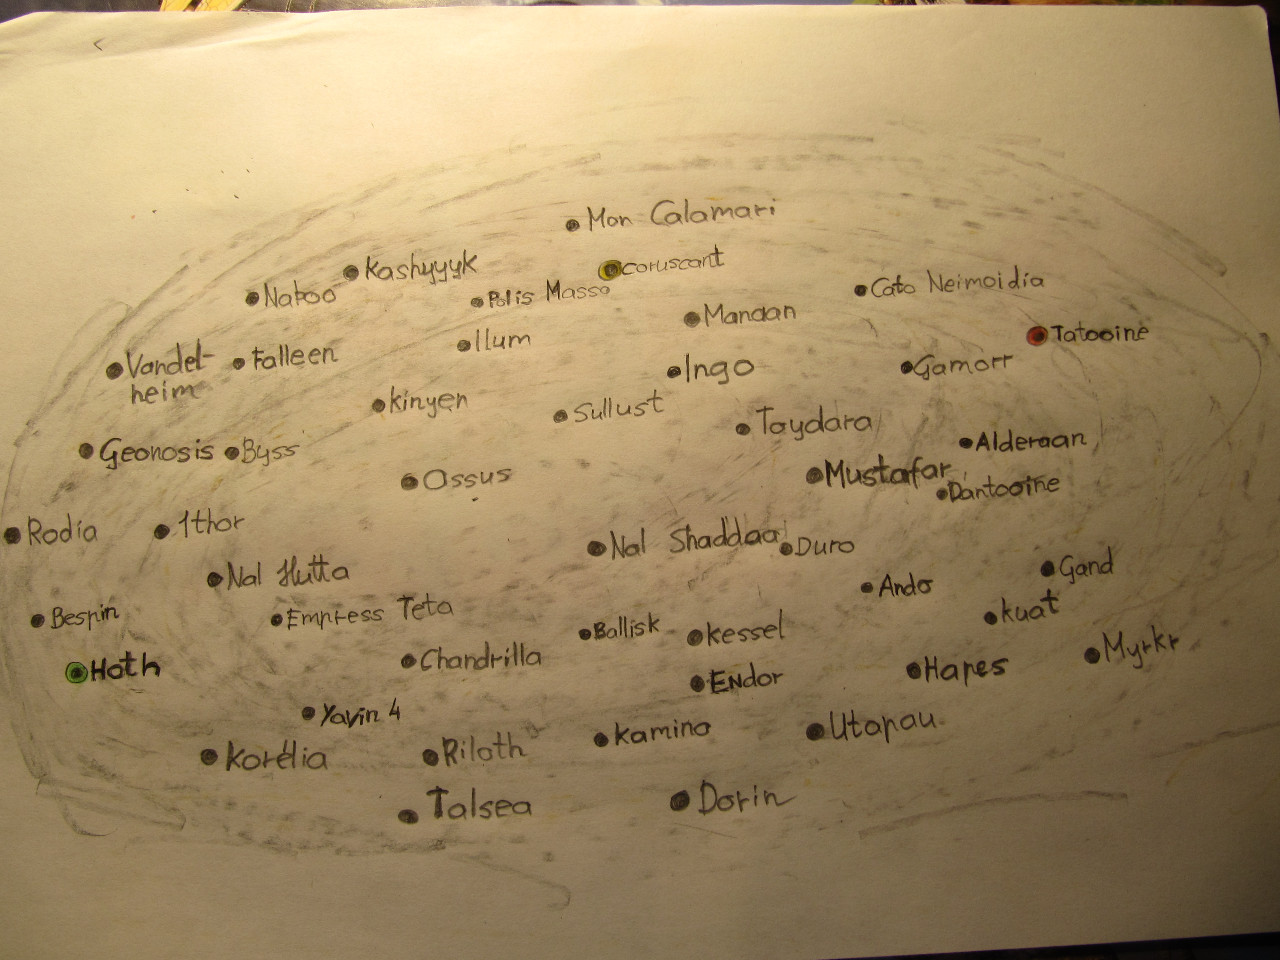 Mon Calamari
Kashyyyk
Coruscant
Naboo
Polis Massa
Cato Neimoidia
Manaan
Tatooine
Vandel-
heim
Falleen
Ilum
Ingo
Gamorr
Kinyen
Sullust
Taydara
Geonosis
Byss
Alderaan
Ossus
Mustafar
Dantooine
Rodia
Ithor
Nal Shaddaa
Duro
Nal Hutta
Gand
Ando
Bespin
Empress Teta
Kuat
Ballisk
Kessel
Hoth
Chandrilla
Endor
Hapes
Myrkr
Yavin 4
Korélia
Riloth
Kamino
Utapau
Talsea
Dorin